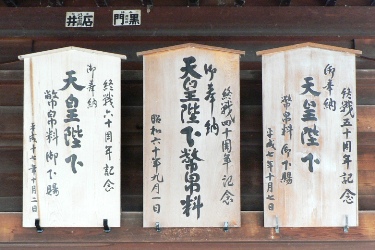 石井
黒門
終戦六十周年記念
御奉納
天皇陛下
幣帛料御下賜
平成十七年十月二日
終戦四十周年記念
御奉納
天皇陛下幣帛料
昭和六十年九月一日
終戦五十周年記念
御奉納
天皇陛下
幣帛料御下賜
平成七年十月七日